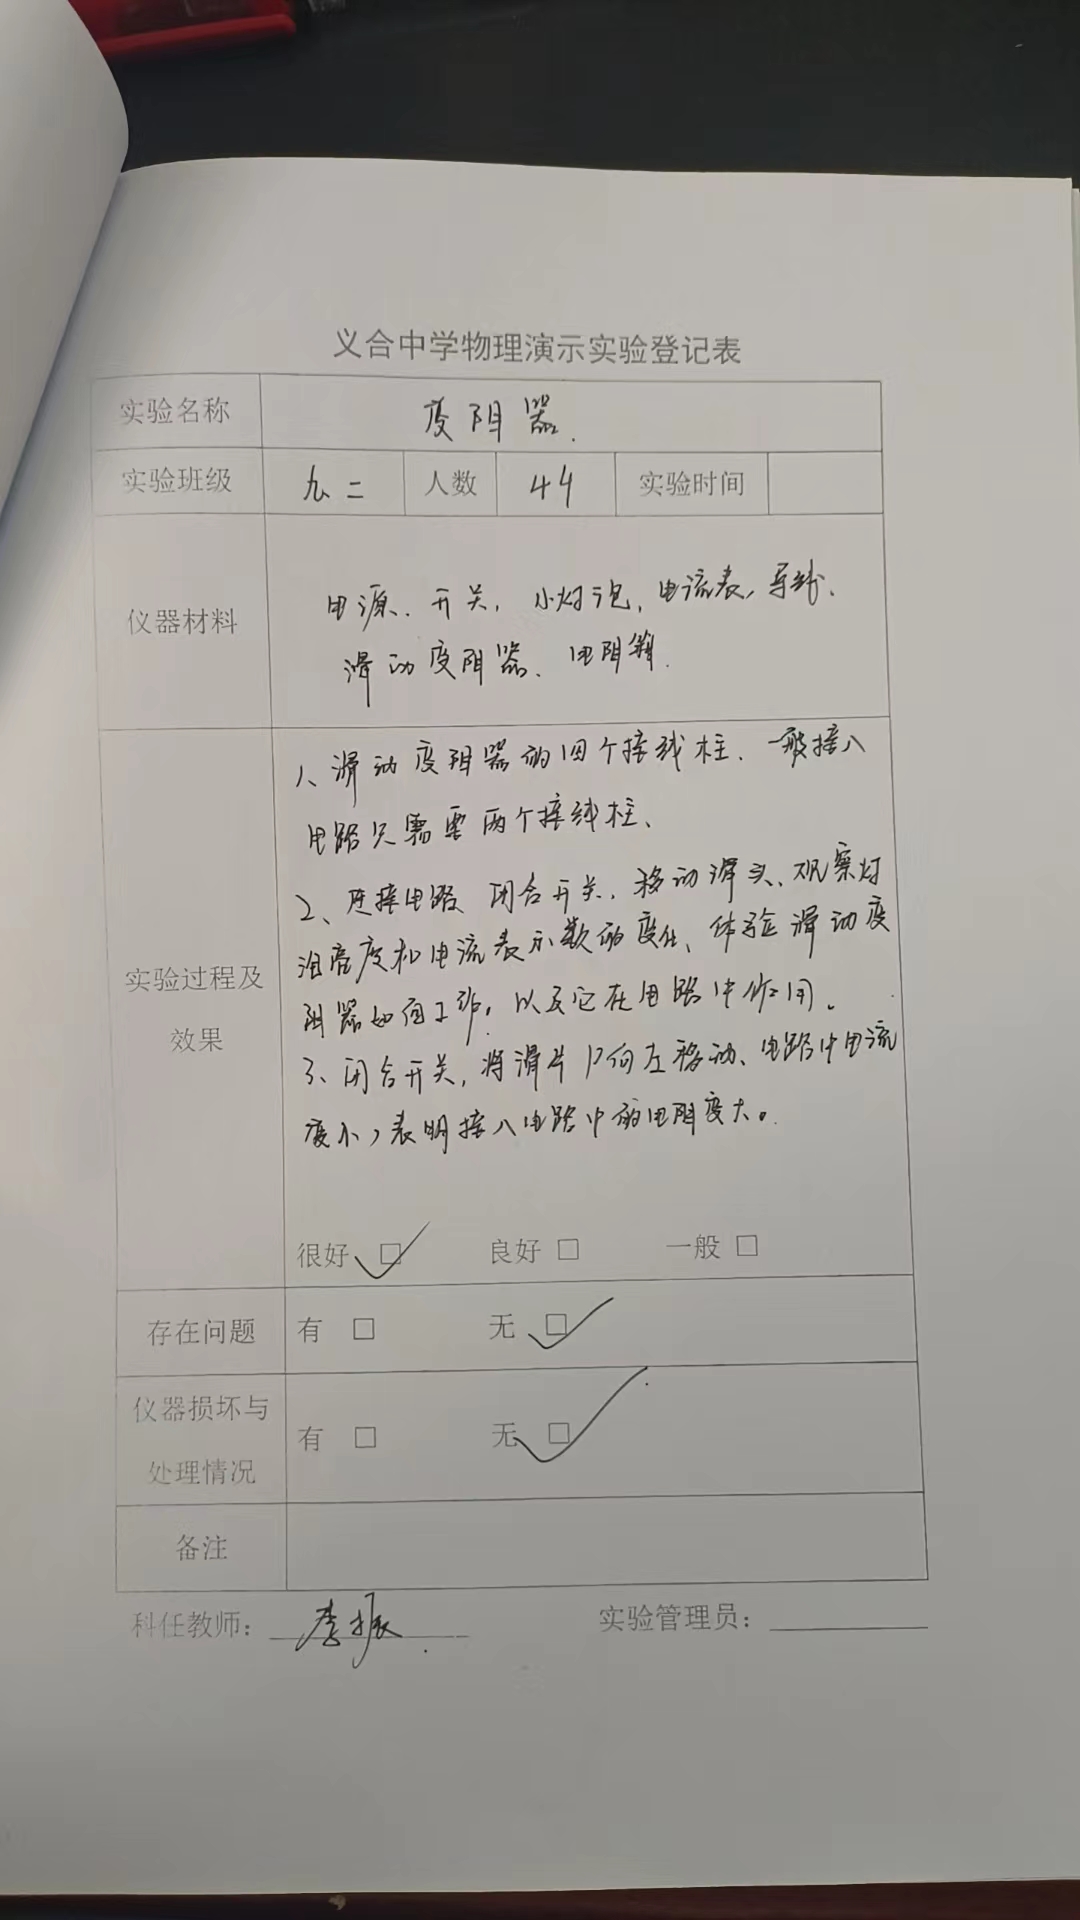 义合中学物理演示实验登记表
实验名称 变阻器.
实验班级 九.二 人数 44 实验时间
仪器材料 电源、开关、小灯泡、电流表、导线、
滑动变阻器、电阻箱.
1、滑动变阻器的四个接线柱、一般接入
电路只需要两个接线柱、
2、连接电路 闭合开关、移动滑头、观察灯
泡亮度和电流表示数的变化、体验滑动变
实验过程及
阻器如何工作,以及它在电路中作用。
效果
3、闭合开关,将滑片P向左移动、电路中电流
变小,表明接入电路中的电阻变大。
很好 ☑ 良好 □ 一般 □
存在问题 有 □ 无 ☑
仪器损坏与
有 □ 无 ☑
处理情况
备注
科任教师: 李振 实验管理员: